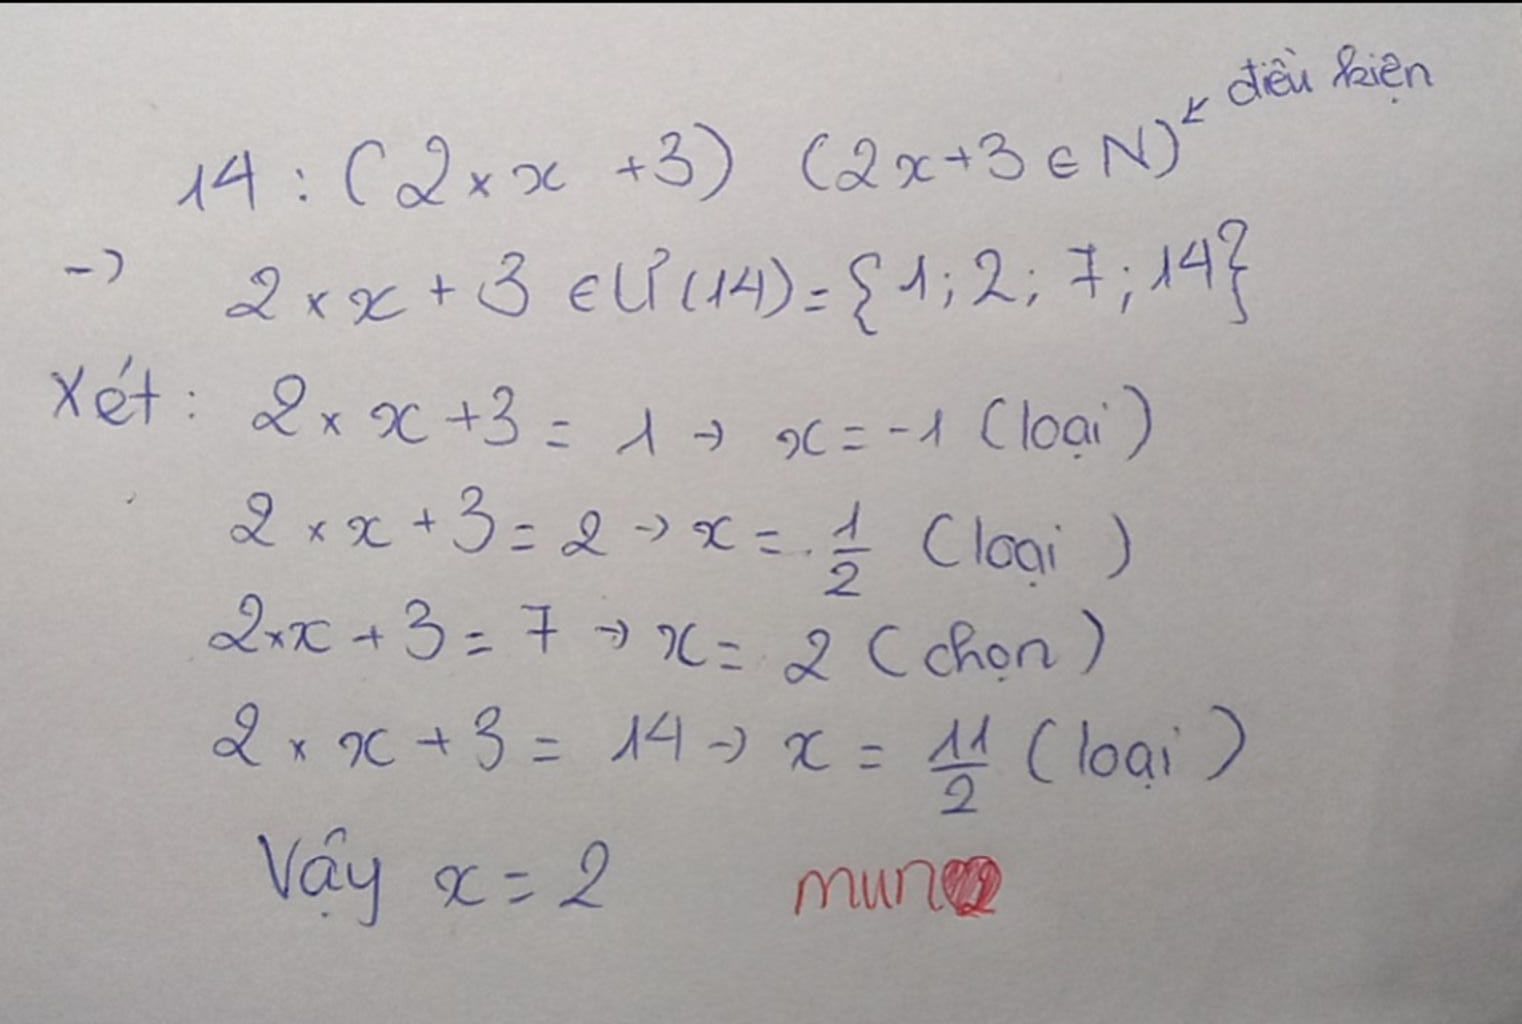 14 : (2 × x + 3) (2x + 3 ∈ N) ↙ điều kiện
→ 2 × x + 3 ∈ Ư(14) = {1; 2; 7; 14}
Xét: 2 × x + 3 = 1 → x = -1 (loại)
2 × x + 3 = 2 → x = -1/2 (loại)
2 × x + 3 = 7 → x = 2 (chọn)
2 × x + 3 = 14 → x = 11/2 (loại)
Vậy x = 2 mun